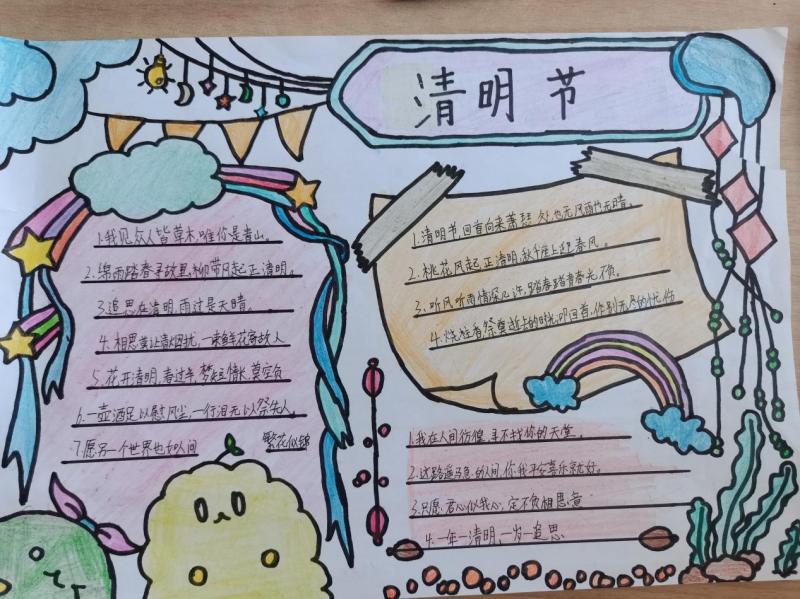 清明节
1.我见众人皆草木,唯你是青山。
2.绵雨踏春寻故里,柳带风起正清明。
3.追思在清明,雨过是天晴
4.相思莫让清秋困扰,一束鲜花寄故人
5.花开清明,春过半,梦短情长,莫空负
6.一壶酒足以慰风尘,一行泪无以祭先人。
7.愿另一个世界也如人间 繁花似锦
1.清明节,回首向来萧瑟处,也无风雨也无晴。
2.桃花风起正清明,秋千崖上迎春风。
3.听风听雨情深几许,踏春踏青春光不负。
4.烧炷香祭奠逝去的时光,叩回首,作别无尽的忧伤
1.我在人间彷徨,寻不找你的天堂。
2.这路遥马急的人间,你我平安喜乐就好。
3.只愿君心似我心,定不负相思意
4.一年一清明,一岁一追思